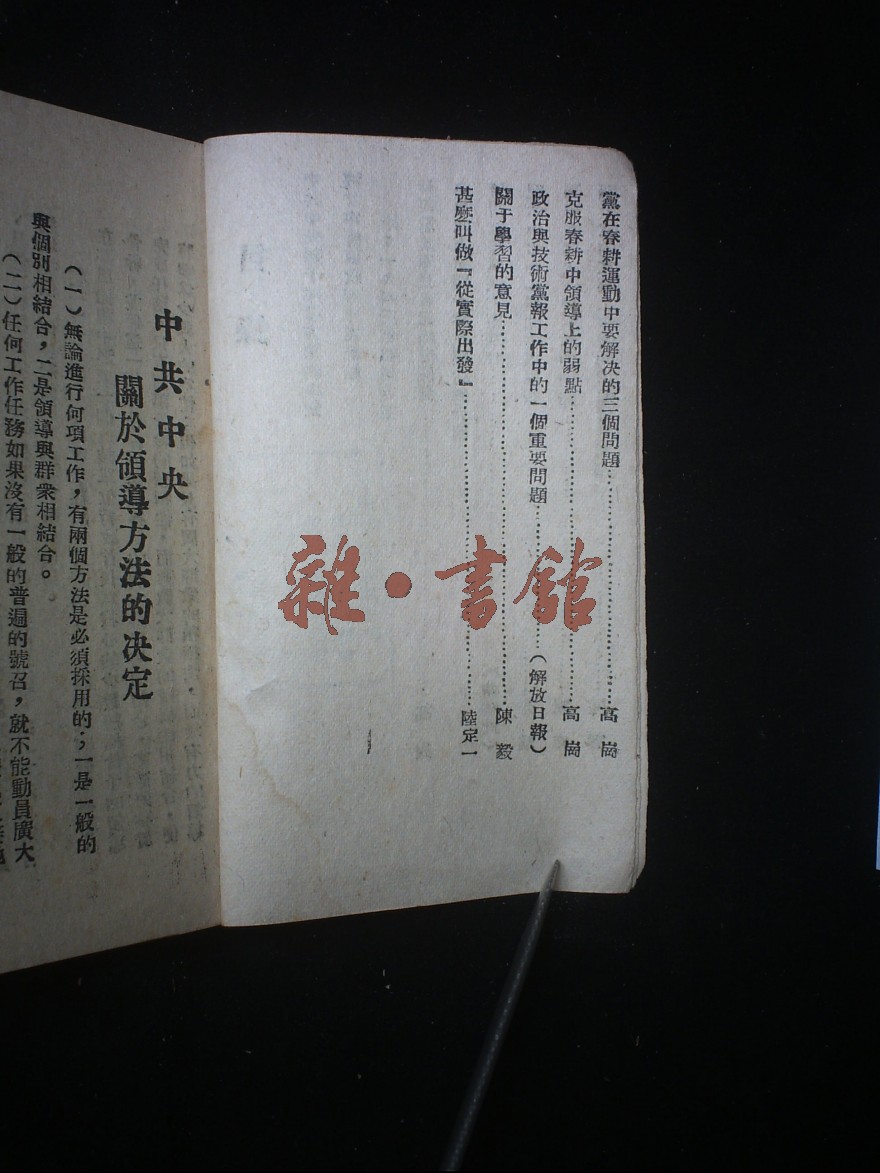 黨在春耕運動中要解决的三個問題……………………高崗
克服春耕中領導上的弱點……………………高崗
政治與技術黨報工作中的一個重要問題……………(解放日報)
關于學習的意見……………………陳毅
甚麽叫做『從實際出發』……………………陸定一
雜·書館
中共中央
關於領導方法的决定
(一)無論進行何項工作,有兩個方法是必須採用的;一是一般的
與個別相結合,二是領導與群衆相結合。
(二)任何工作任務如果沒有一般的普遍的號召,就不能動員廣大